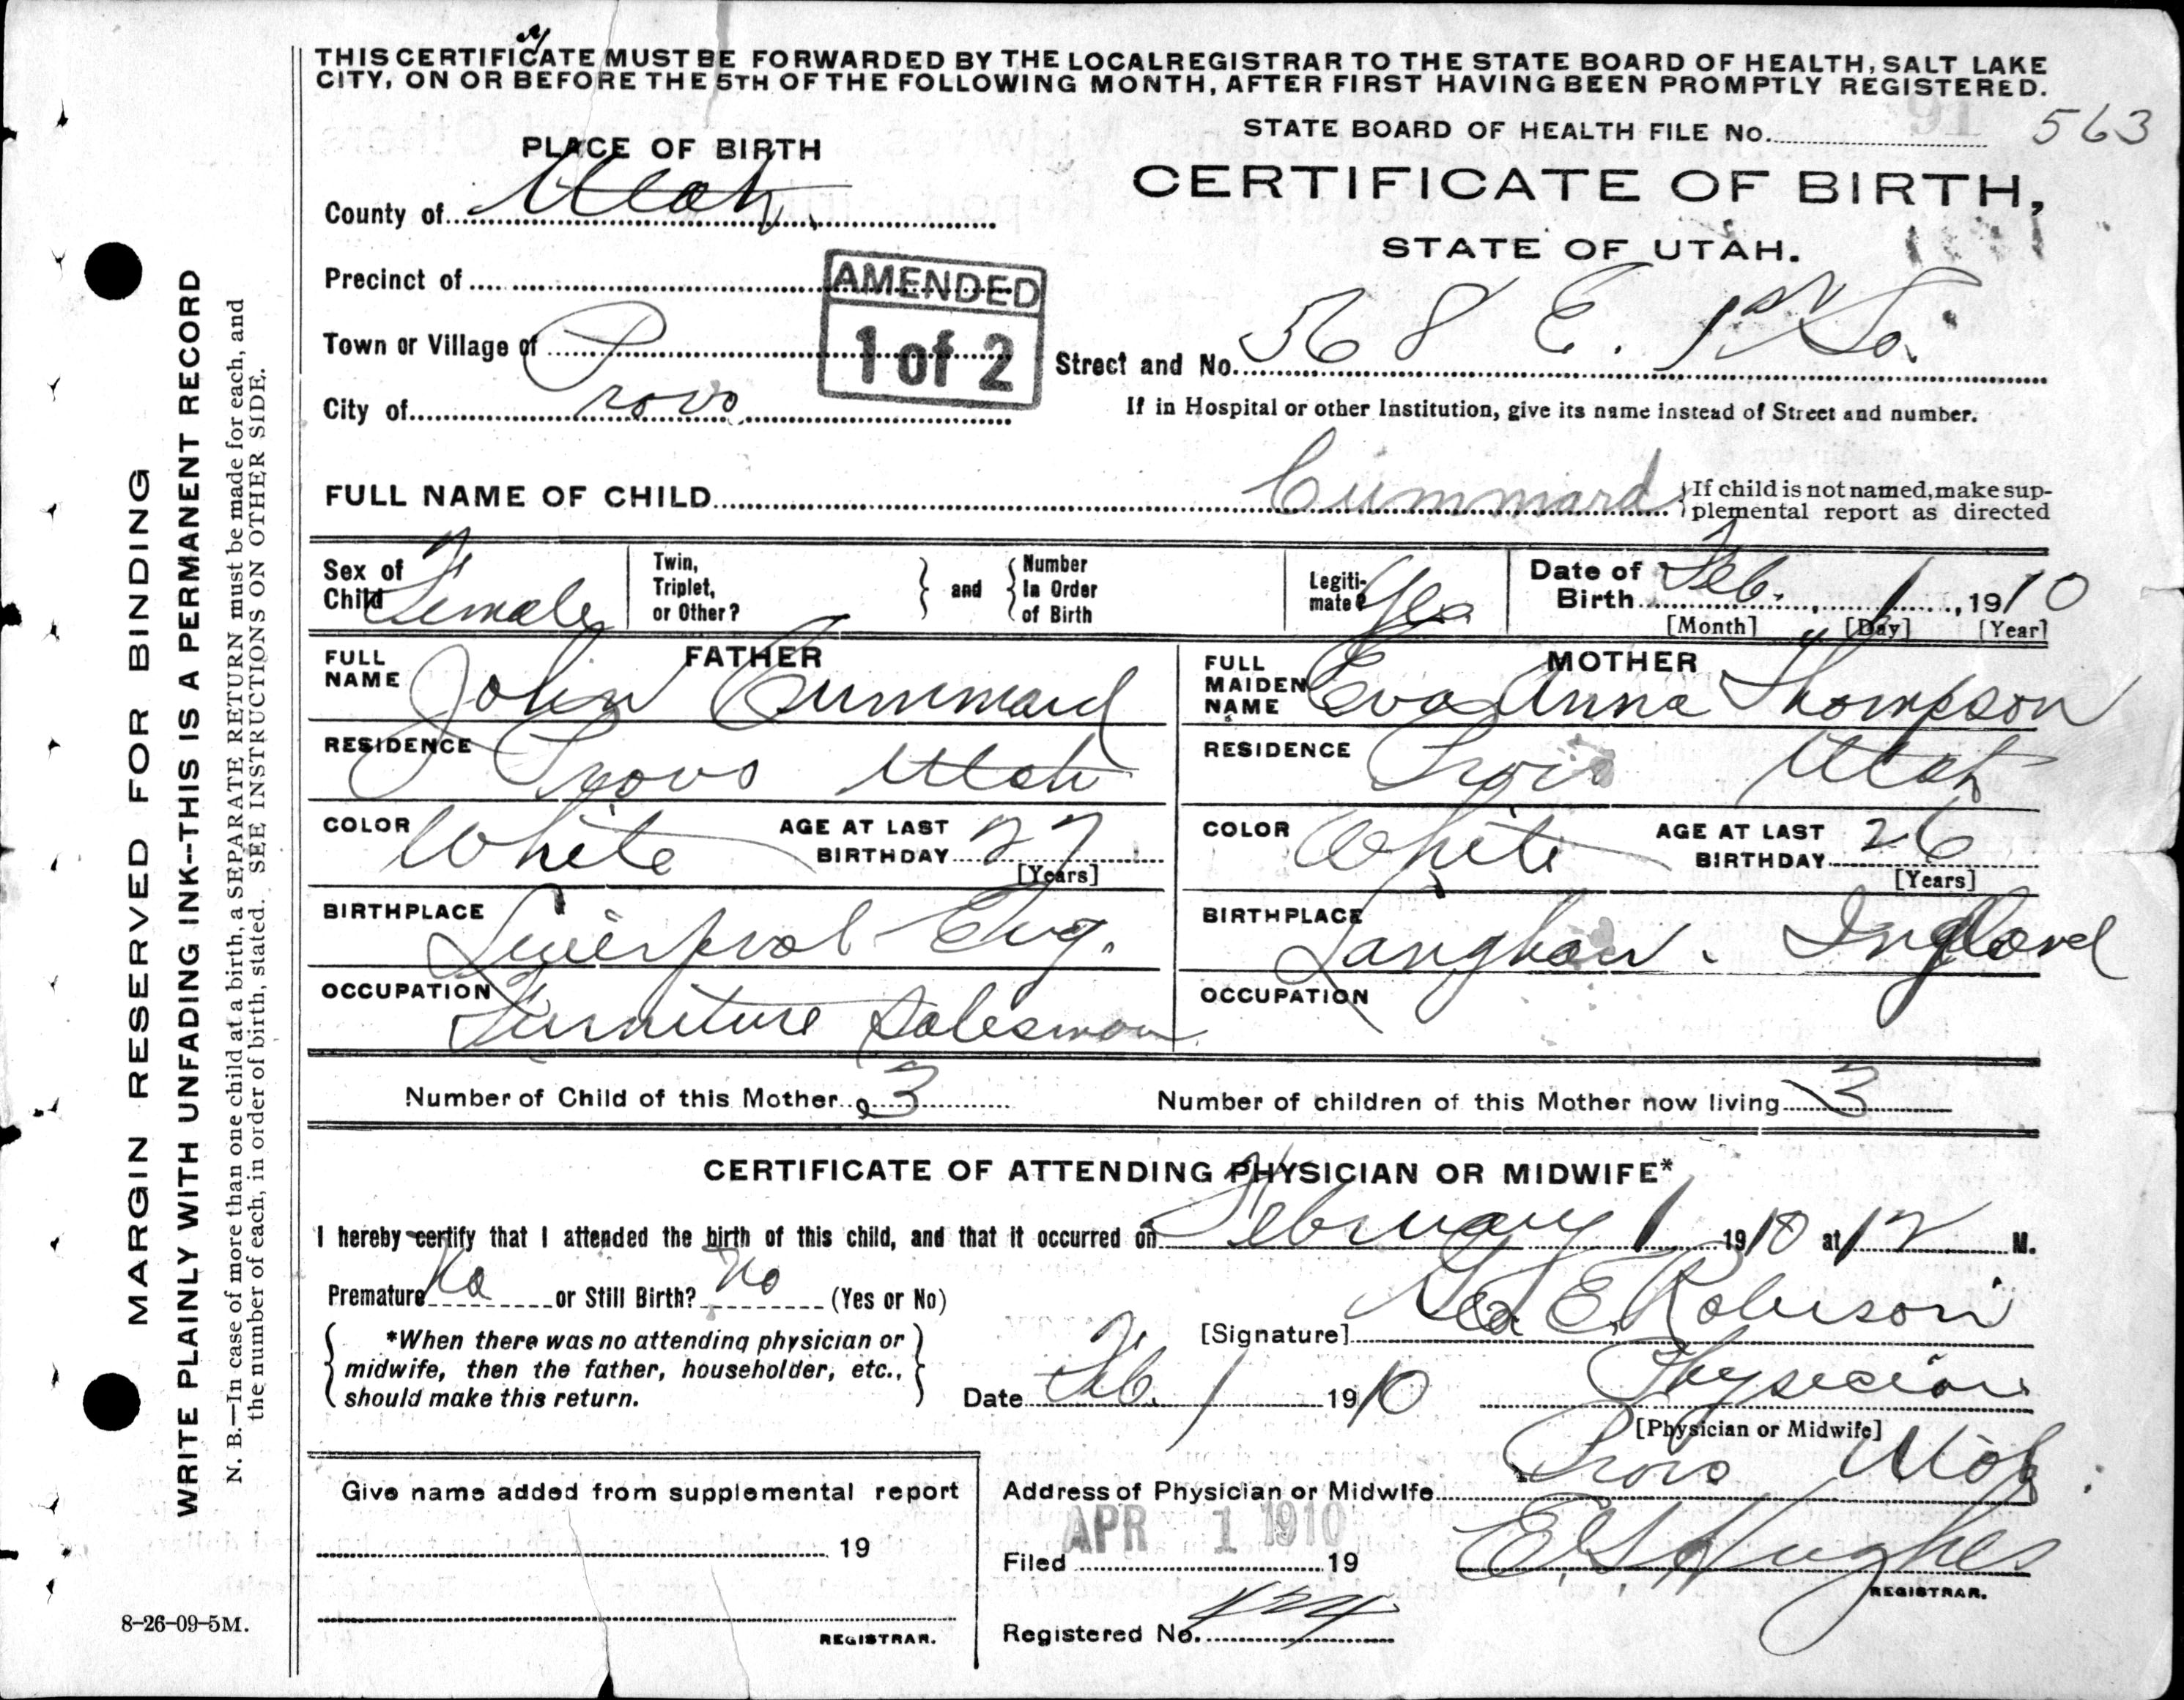 THIS CERTIFICATE MUST BE FORWARDED BY THE LOCAL REGISTRAR TO THE STATE BOARD OF HEALTH, SALT LAKE
CITY, ON OR BEFORE THE 5TH OF THE FOLLOWING MONTH, AFTER FIRST HAVING BEEN PROMPTLY REGISTERED.
STATE BOARD OF HEALTH FILE No. 91 563
PLACE OF BIRTH
CERTIFICATE OF BIRTH,
STATE OF UTAH.
County of Utah
Precinct of
AMENDED
1 of 2
Town or Village of Provo
City of
Street and No. 568 E. 1st So.
If in Hospital or other Institution, give its name instead of Street and number.
FULL NAME OF CHILD Cummard
{If child is not named, make sup-
plemental report as directed
Sex of Child Female
Twin, Triplet, or Other?
} and {
Number In Order of Birth
Legiti-mate? Yes
Date of Birth Feb. 1, 1910
[Month] [Day] [Year]
FATHER
FULL NAME John Cummard
RESIDENCE Provo Utah
COLOR White
AGE AT LAST BIRTHDAY 27
[Years]
BIRTHPLACE Liverpool Eng.
OCCUPATION Furniture Salesman
MOTHER
FULL MAIDEN NAME Eva Anna Thompson
RESIDENCE Provo Utah
COLOR White
AGE AT LAST BIRTHDAY 26
[Years]
BIRTHPLACE England
OCCUPATION
Number of Child of this Mother 3
Number of children of this Mother now living 3
CERTIFICATE OF ATTENDING PHYSICIAN OR MIDWIFE*
I hereby certify that I attended the birth of this child, and that it occurred on February 1 1910 at 12 M.
Premature No or Still Birth? No (Yes or No)
{ *When there was no attending physician or
midwife, then the father, householder, etc.,
should make this return. }
[Signature] Geo E. Robison
Date Feb. 1 1910
Physician
[Physician or Midwife]
Address of Physician or Midwife Provo Utah
Give name added from supplemental report
19
REGISTRAR.
APR 1 1910
Filed 19
E. G. Hughes
REGISTRAR.
Registered No.
8-26-09-5M.
MARGIN RESERVED FOR BINDING
WRITE PLAINLY WITH UNFADING INK--THIS IS A PERMANENT RECORD
N. B.—In case of more than one child at a birth, a SEPARATE RETURN must be made for each, and
the number of each, in order of birth, stated. SEE INSTRUCTIONS ON OTHER SIDE.